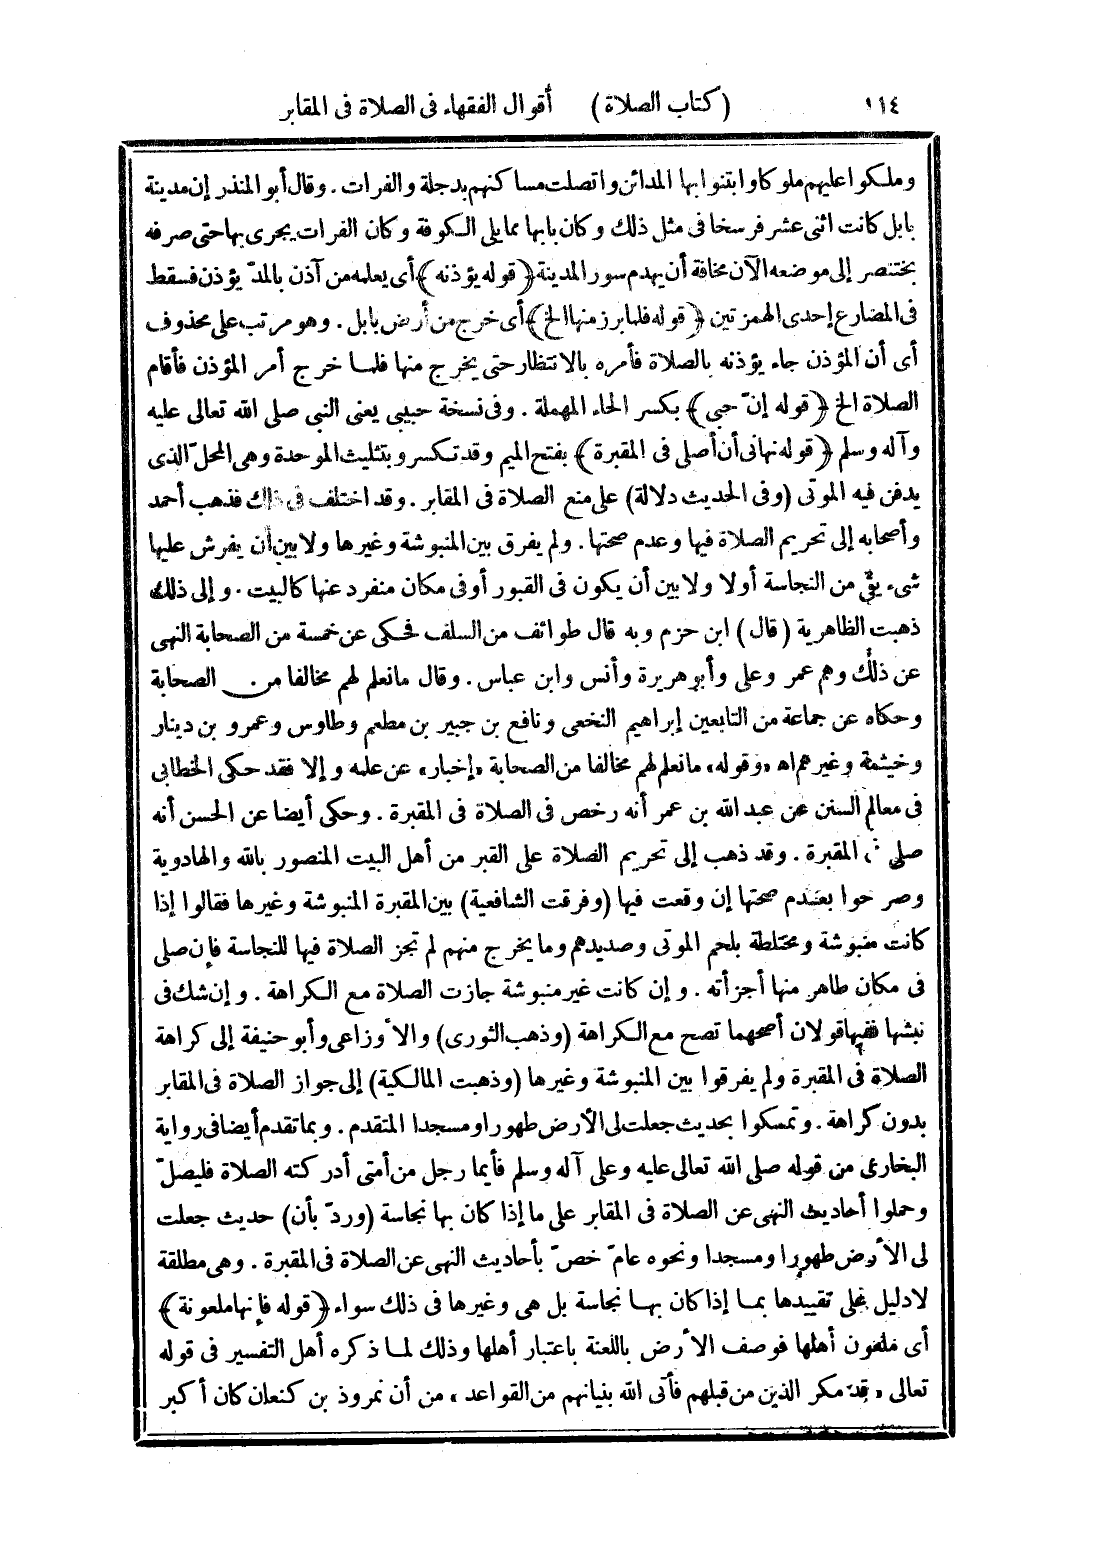 ١١٤ (كتاب الصلاة) أقوال الفقهاء فى الصلاة فى المقابر
وملكوا عليهم ملوكا وابتنوا بها المدائن واتصلت مساكنهم بدجلة والفرات . وقال أبو المنذر إن مدينة
بابل كانت اثنى عشر فرسخا فى مثل ذلك وكان بابها مما يلى الكوفة وكان الفرات يجرى بها حتى صرفه
بختنصر إلى موضعه الآن مخافة أن يهدم سور المدينة ﴿قوله يؤذنه﴾ أى يعلمه من آذن بالمدّ يؤذن فسقط
فى المضارع إحدى الهمزتين ﴿قوله فلما برز منها الخ﴾ أى خرج من أرض بابل . وهو مرتب على محذوف
أى أن المؤذن جاء يؤذنه بالصلاة فأمره بالانتظار حتى يخرج منها فلما خرج أمر المؤذن فأقام
الصلاة الخ ﴿قوله إنّ حبى﴾ بكسر الحاء المهملة . وفى نسخة حبيبى يعنى النبى صلى الله تعالى عليه
وآله وسلم ﴿قوله نهانى أن أصلى فى المقبرة﴾ بفتح الميم وقد تكسر وبتثليث الموحدة وهى المحلّ الذى
يدفن فيه الموتى (وفى الحديث دلالة) على منع الصلاة فى المقابر . وقد اختلف فى ذلك فذهب أحمد
وأصحابه إلى تحريم الصلاة فيها وعدم صحتها . ولم يفرق بين المنبوشة وغيرها ولا بين أن يفرش عليها
شىء يقى من النجاسة أولا ولا بين أن يكون فى القبور أو فى مكان منفرد عنها كالبيت . وإلى ذلك
ذهبت الظاهرية (قال) ابن حزم وبه قال طوائف من السلف فحكى عن خمسة من الصحابة النهى
عن ذلك وهم عمر وعلى وأبو هريرة وأنس وابن عباس . وقال ما نعلم لهم مخالفا من الصحابة
وحكاه عن جماعة من التابعين إبراهيم النخعى ونافع بن جبير بن مطعم وطاوس وعمرو بن دينار
وخيثمة وغيرهم اه «وقوله» ما نعلم لهم مخالفا من الصحابة «إخبار» عن علمه وإلا فقد حكى الخطابى
فى معالم السنن عن عبد الله بن عمر أنه رخص فى الصلاة فى المقبرة . وحكى أيضا عن الحسن أنه
صلى فى المقبرة . وقد ذهب إلى تحريم الصلاة على القبر من أهل البيت المنصور بالله والهادوية
وصرحوا بعدم صحتها إن وقعت فيها (وفرقت الشافعية) بين المقبرة المنبوشة وغيرها فقالوا إذا
كانت منبوشة ومختلطة بلحم الموتى وصديدهم وما يخرج منهم لم تجز الصلاة فيها للنجاسة فإن صلى
فى مكان طاهر منها أجزأته . وإن كانت غير منبوشة جازت الصلاة مع الكراهة . وإن شك فى
نبشها ففيها قولان أصحهما تصح مع الكراهة (وذهب الثورى) والأوزاعى وأبو حنيفة إلى كراهة
الصلاة فى المقبرة ولم يفرقوا بين المنبوشة وغيرها (وذهبت المالكية) إلى جواز الصلاة فى المقابر
بدون كراهة . وتمسكوا بحديث جعلت لى الأرض طهورا ومسجدا المتقدم . وبما تقدم أيضا فى رواية
البخارى من قوله صلى الله تعالى عليه وعلى آله وسلم فأيما رجل من أمتى أدركته الصلاة فليصلّ
وحملوا أحاديث النهى عن الصلاة فى المقابر على ما إذا كان بها نجاسة (وردّ بأن) حديث جعلت
لى الأرض طهورا ومسجدا ونحوه عامّ خصّ بأحاديث النهى عن الصلاة فى المقبرة . وهى مطلقة
لا دليل على تقييدها بما إذا كان بها نجاسة بل هى وغيرها فى ذلك سواء ﴿قوله فإنها ملعونة﴾
أى ملعون أهلها فوصف الأرض باللعنة باعتبار أهلها وذلك لما ذكره أهل التفسير فى قوله
تعالى «قد مكر الذين من قبلهم فأتى الله بنيانهم من القواعد» من أن نمروذ بن كنعان كان أكبر